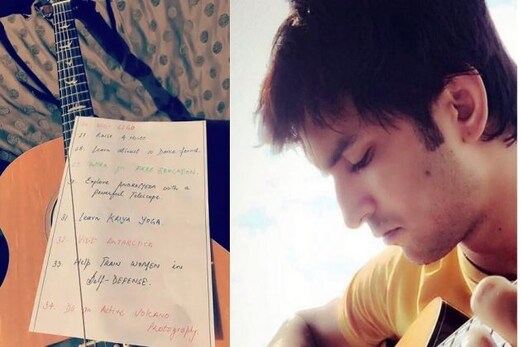 YOGA
27. Raise a Horse
28. Learn atleast 10 Dance forms.
29. WORK for FREE EDUCATION.
30. Explore ANDROMEDA with a
powerful Telescope
31. Learn KRIYA YOGA.
32. VISIT ANTARCTICA
33. Help Train WOMEN in
Self-DEFENSE.
34. Active VOLCANO
Photography